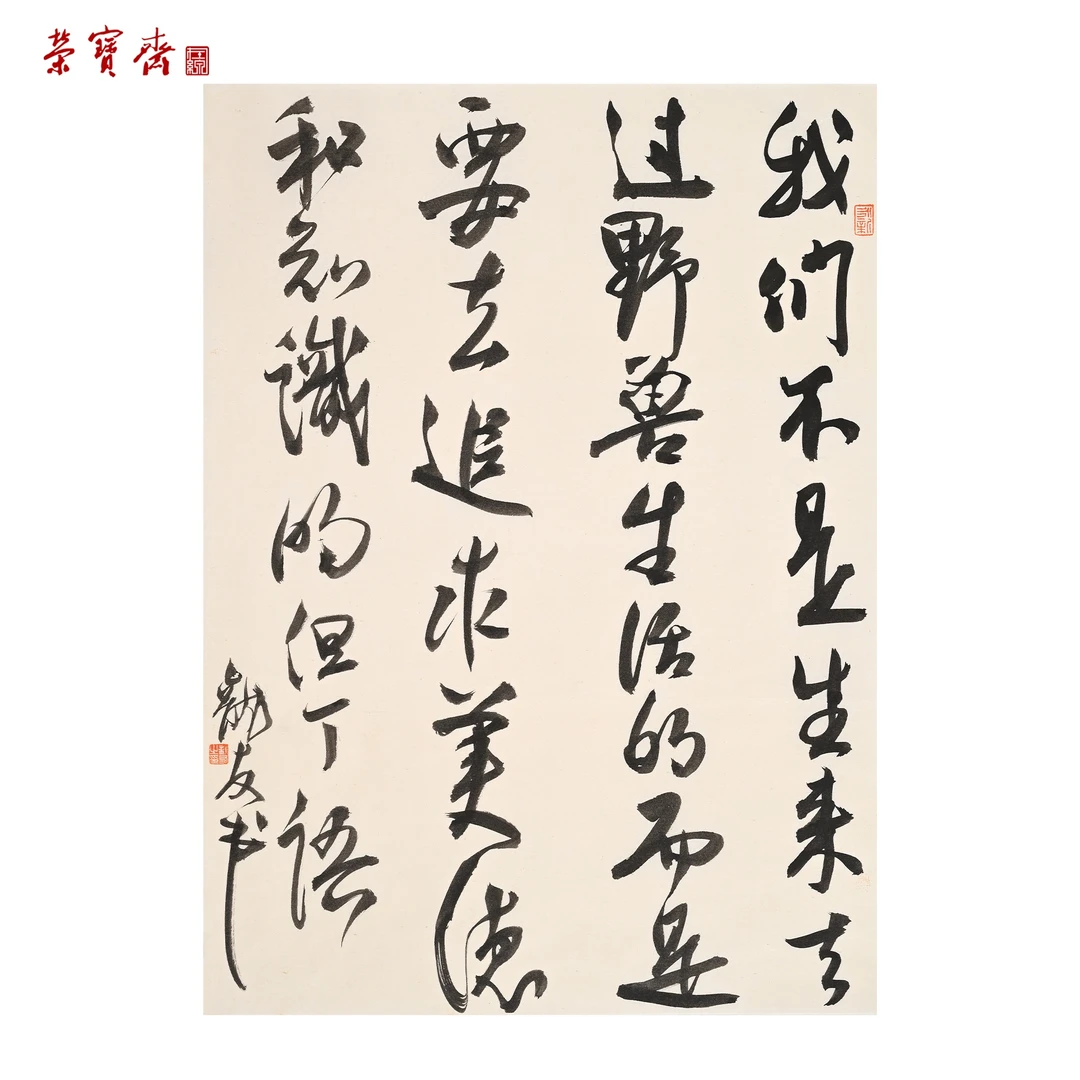 榮寶齋
我们不是生来去
过野兽生活的而是
要去追求美德
和知識的但丁語
友书